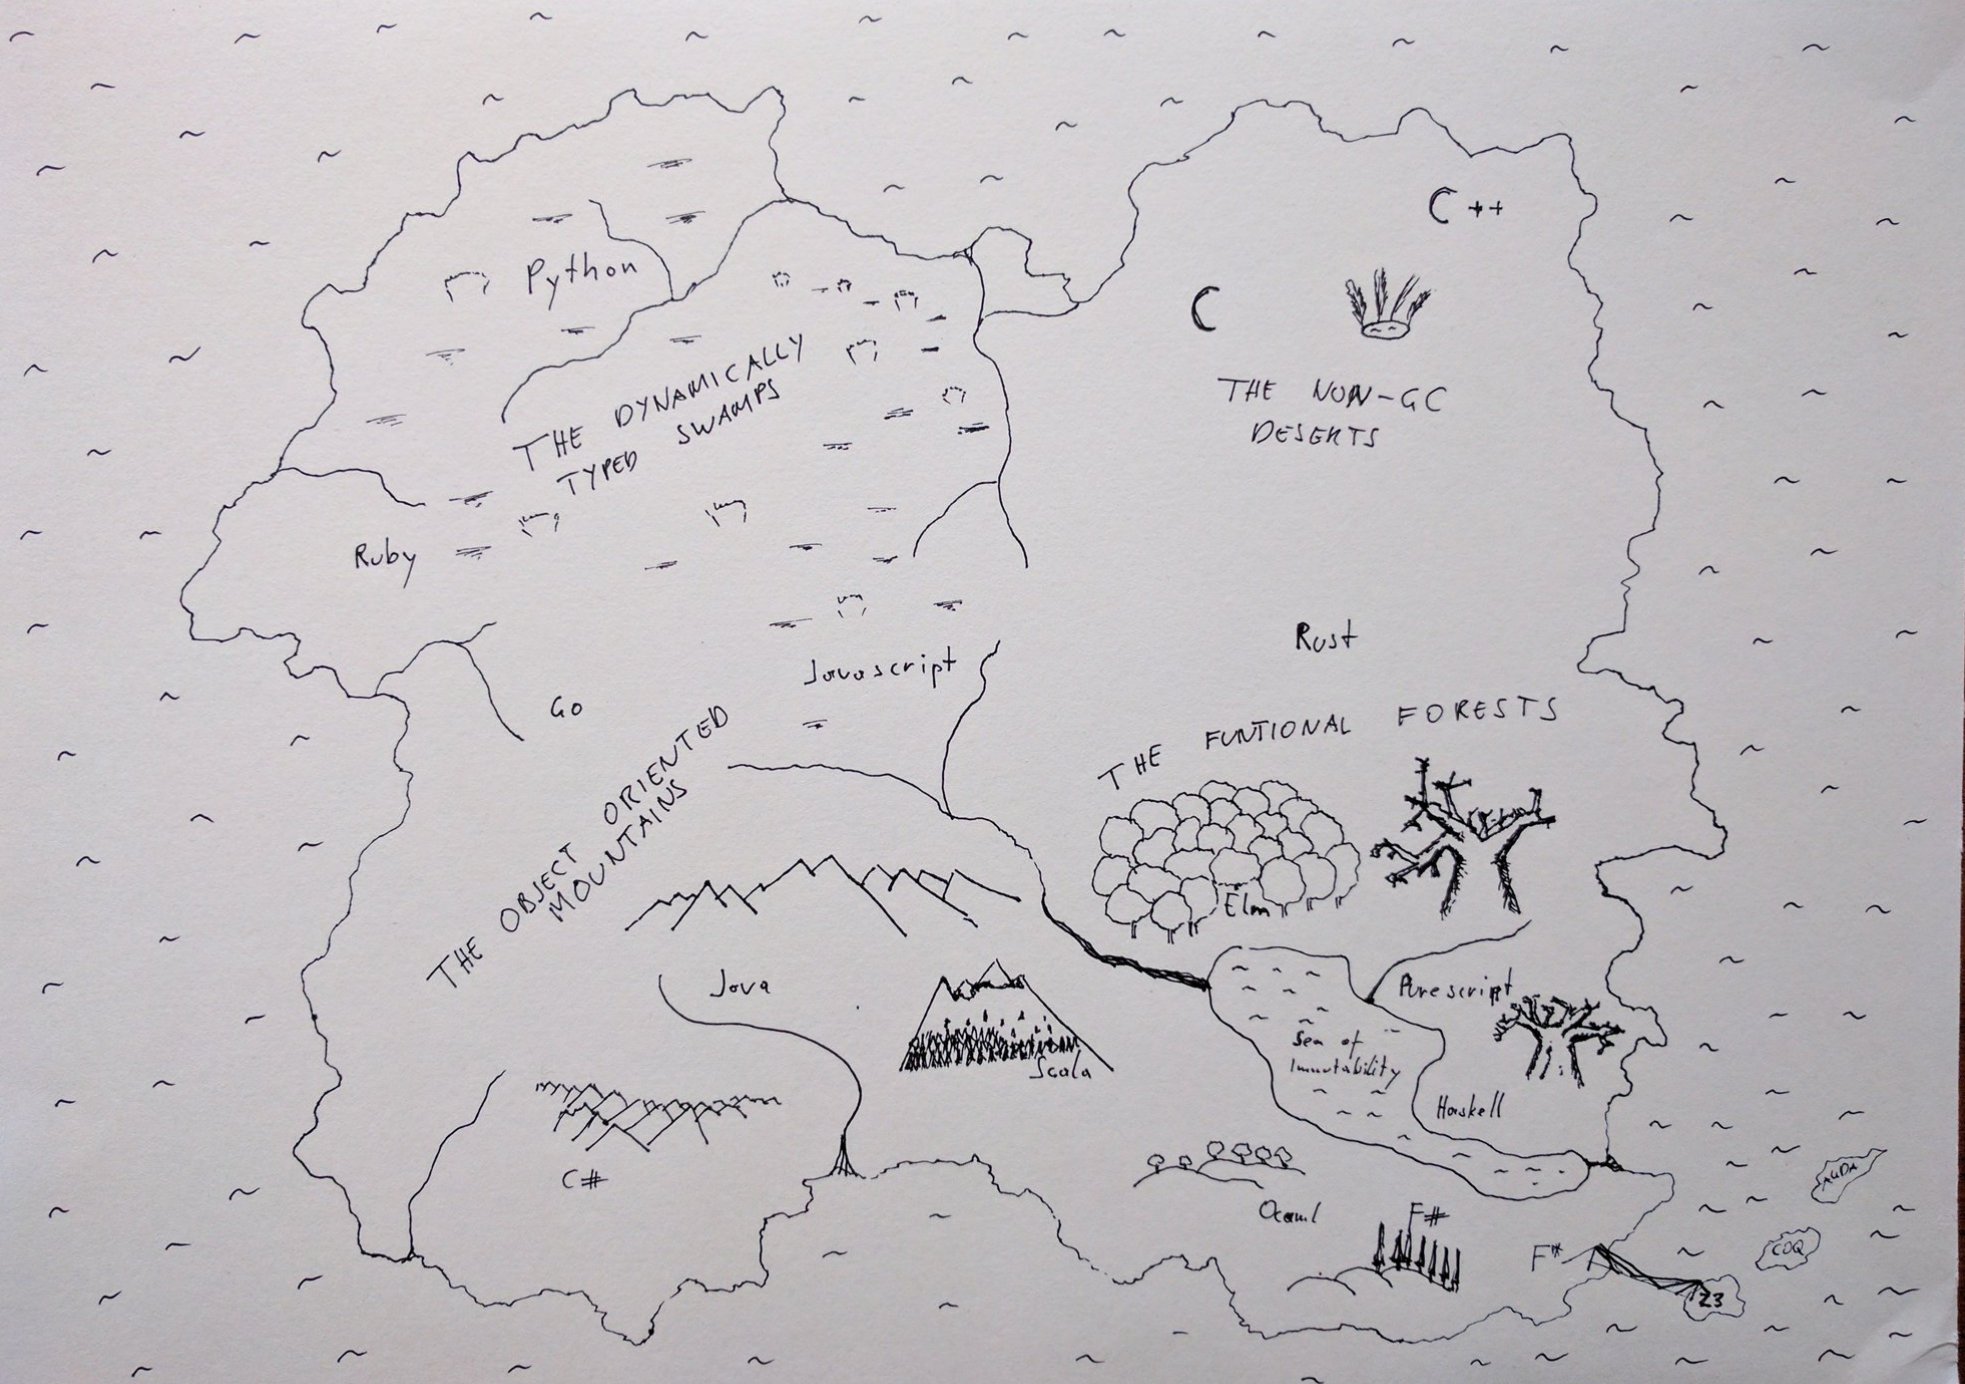 C++
Python
C
THE DYNAMICALLY
TYPED SWAMPS
THE NON-GC
DESERTS
Ruby
Rust
Javascript
Go
THE FUNTIONAL FORESTS
THE OBJECT ORIENTED
MOUNTAINS
Elm
Java
Purescript
Sea of
Immutability
Scala
Haskell
C#
AGDA
Ocaml
F#
COQ
F*
Z3